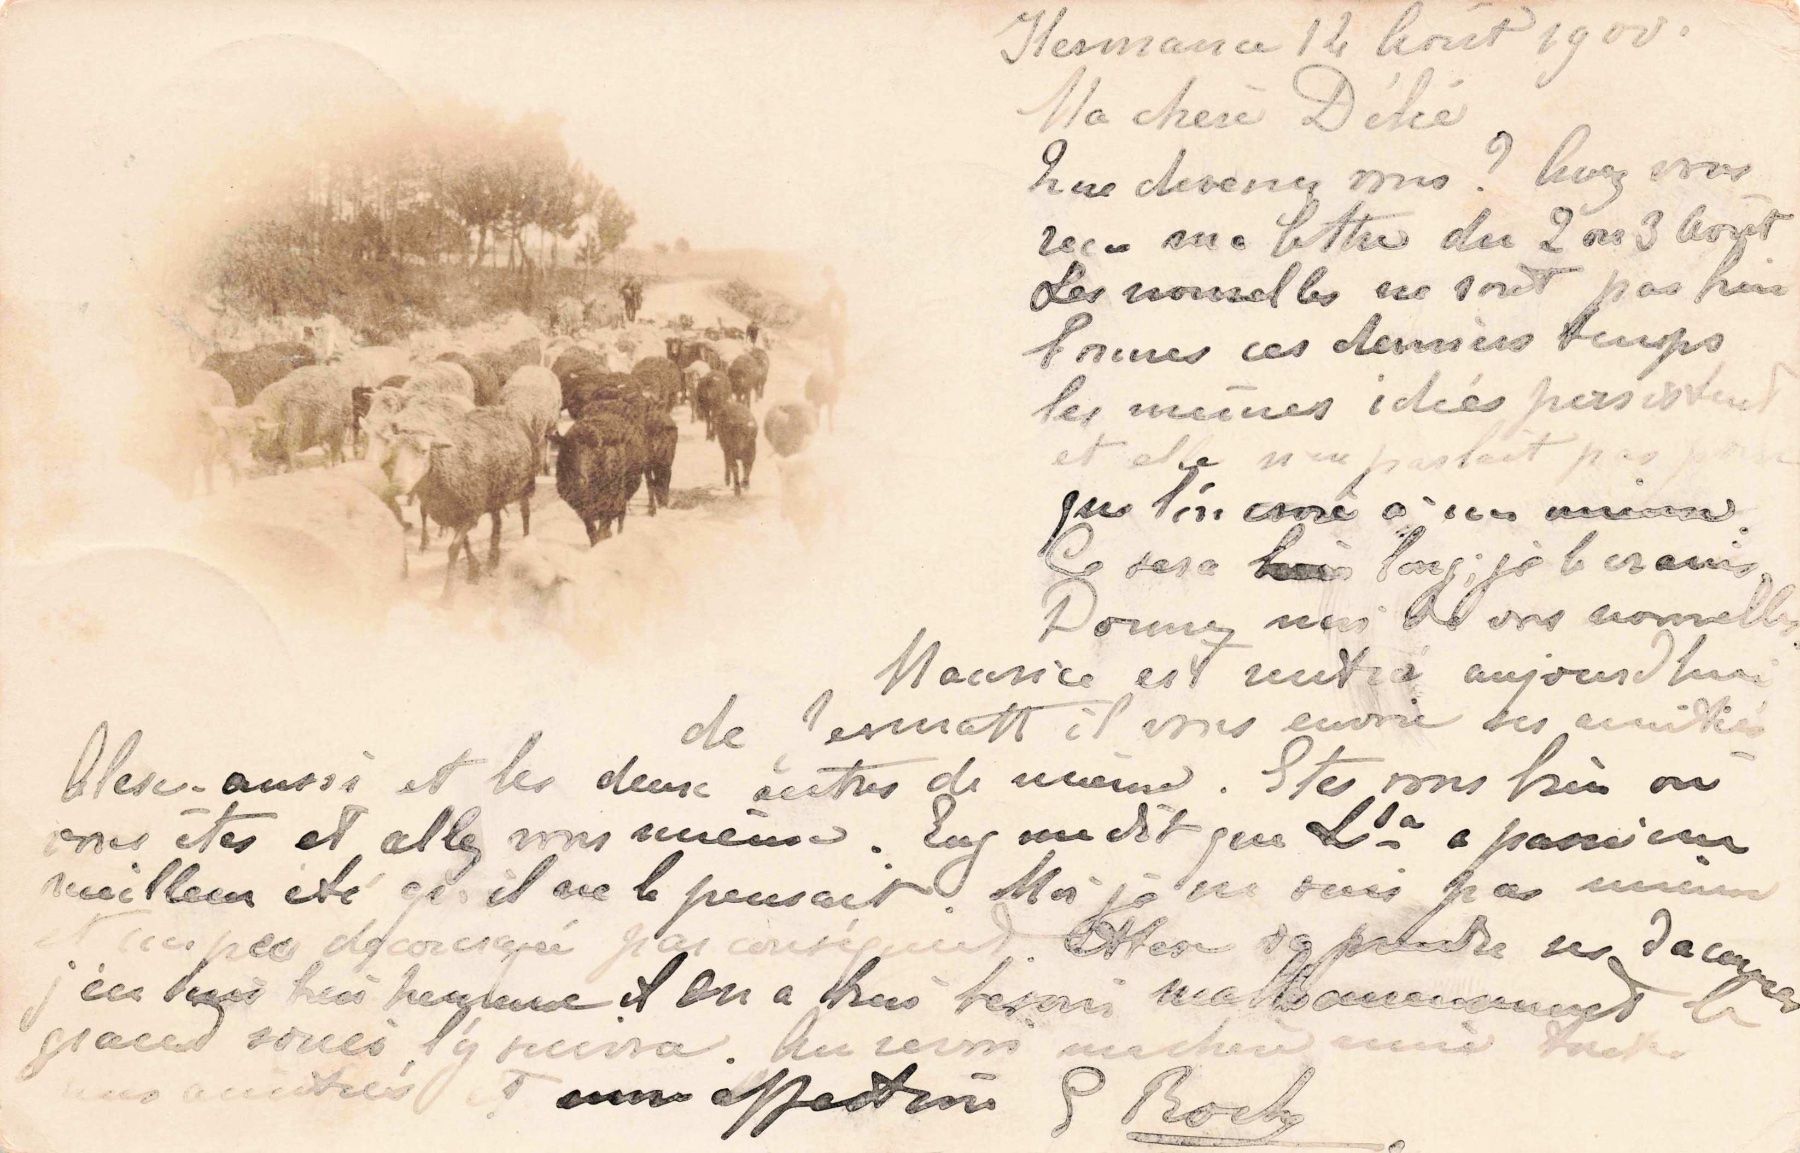 Hermance 12 Août 1900.
Ma chère Délié
Que devenez vous ? Avez vous
reçu ma lettre du 2 ou 3 Août
Les nouvelles ne sont pas bien
bonnes ces derniers temps
les mêmes idées persistent
et elle ne parlait pas
que l'on croie à un mieux.
Ce sera long, je le crains,
Donnez moi de vos nouvelles
Maurice est rentré aujourd'hui
de Zermatt il vous envoie ses amitiés
Alex. aussi et les deux autres de même. Etes vous bien où
vous êtes et allez vous mieux. Eug me dit que a passé un
meilleur été qu'il ne le pensait. Moi je ne suis pas mieux
et un peu découragée par conséquent. Alex va prendre ses vacances
j'en suis très heureuse il en a très besoin malheureusement le
grand souci l'y suivra. Au revoir ma chère amie toutes
nos amitiés et mon affection G Roch